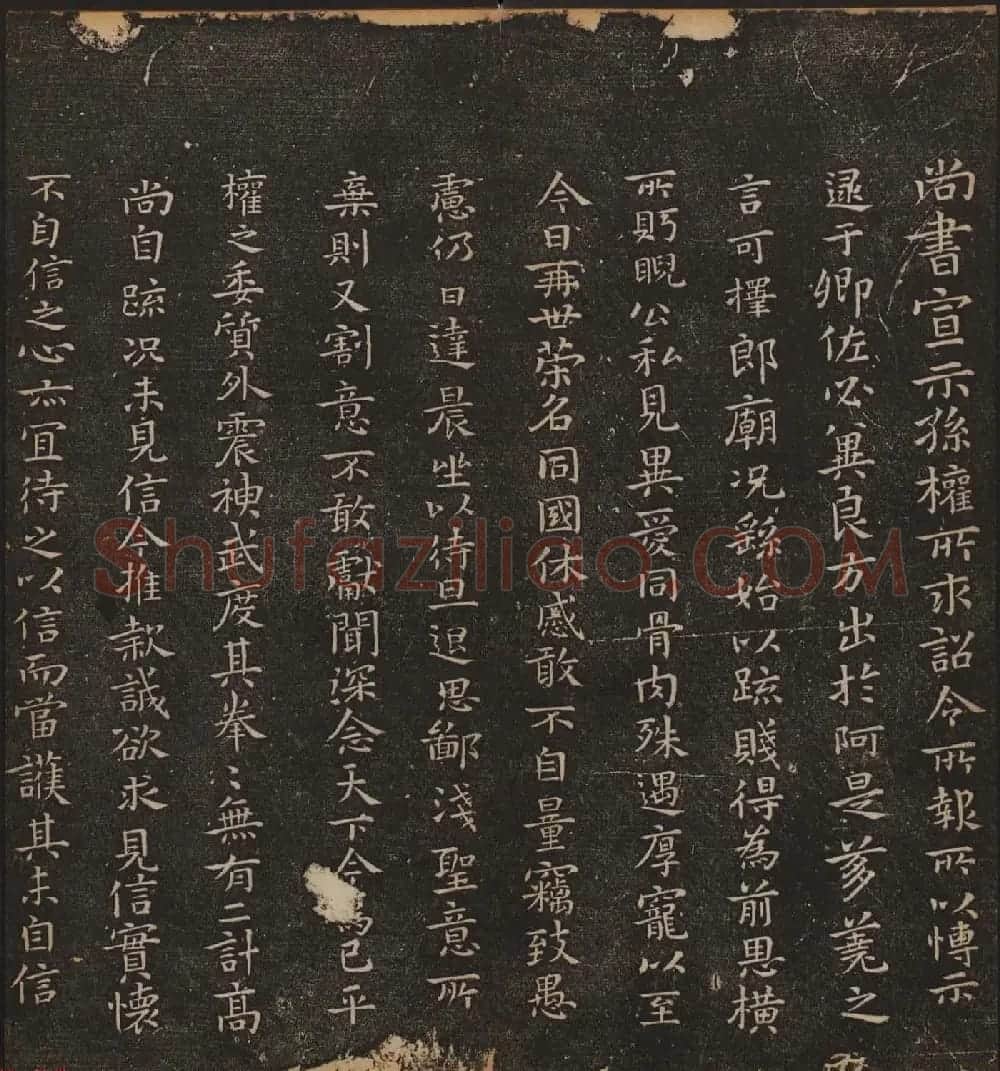 尚書宣示孫權所求詔令所報所以博示
逮于卿佐必冀良方出於阿是芻蕘之
言可擇郎廟況繇始以疏賤得為前恩橫
所䀩睨公私見異愛同骨肉殊遇厚寵以至
今日再世榮名同國休慼敢不自量竊致愚
慮仍日達晨坐以待旦退思鄙淺聖意所
棄則又割意不敢獻聞深念天下今為已平
權之委質外震神武度其拳〻無有二計高
尚自疏況未見信今推款誠欲求見信實懷
不自信之心亦宜待之以信而當護其未自信
Shufaziliao.COM